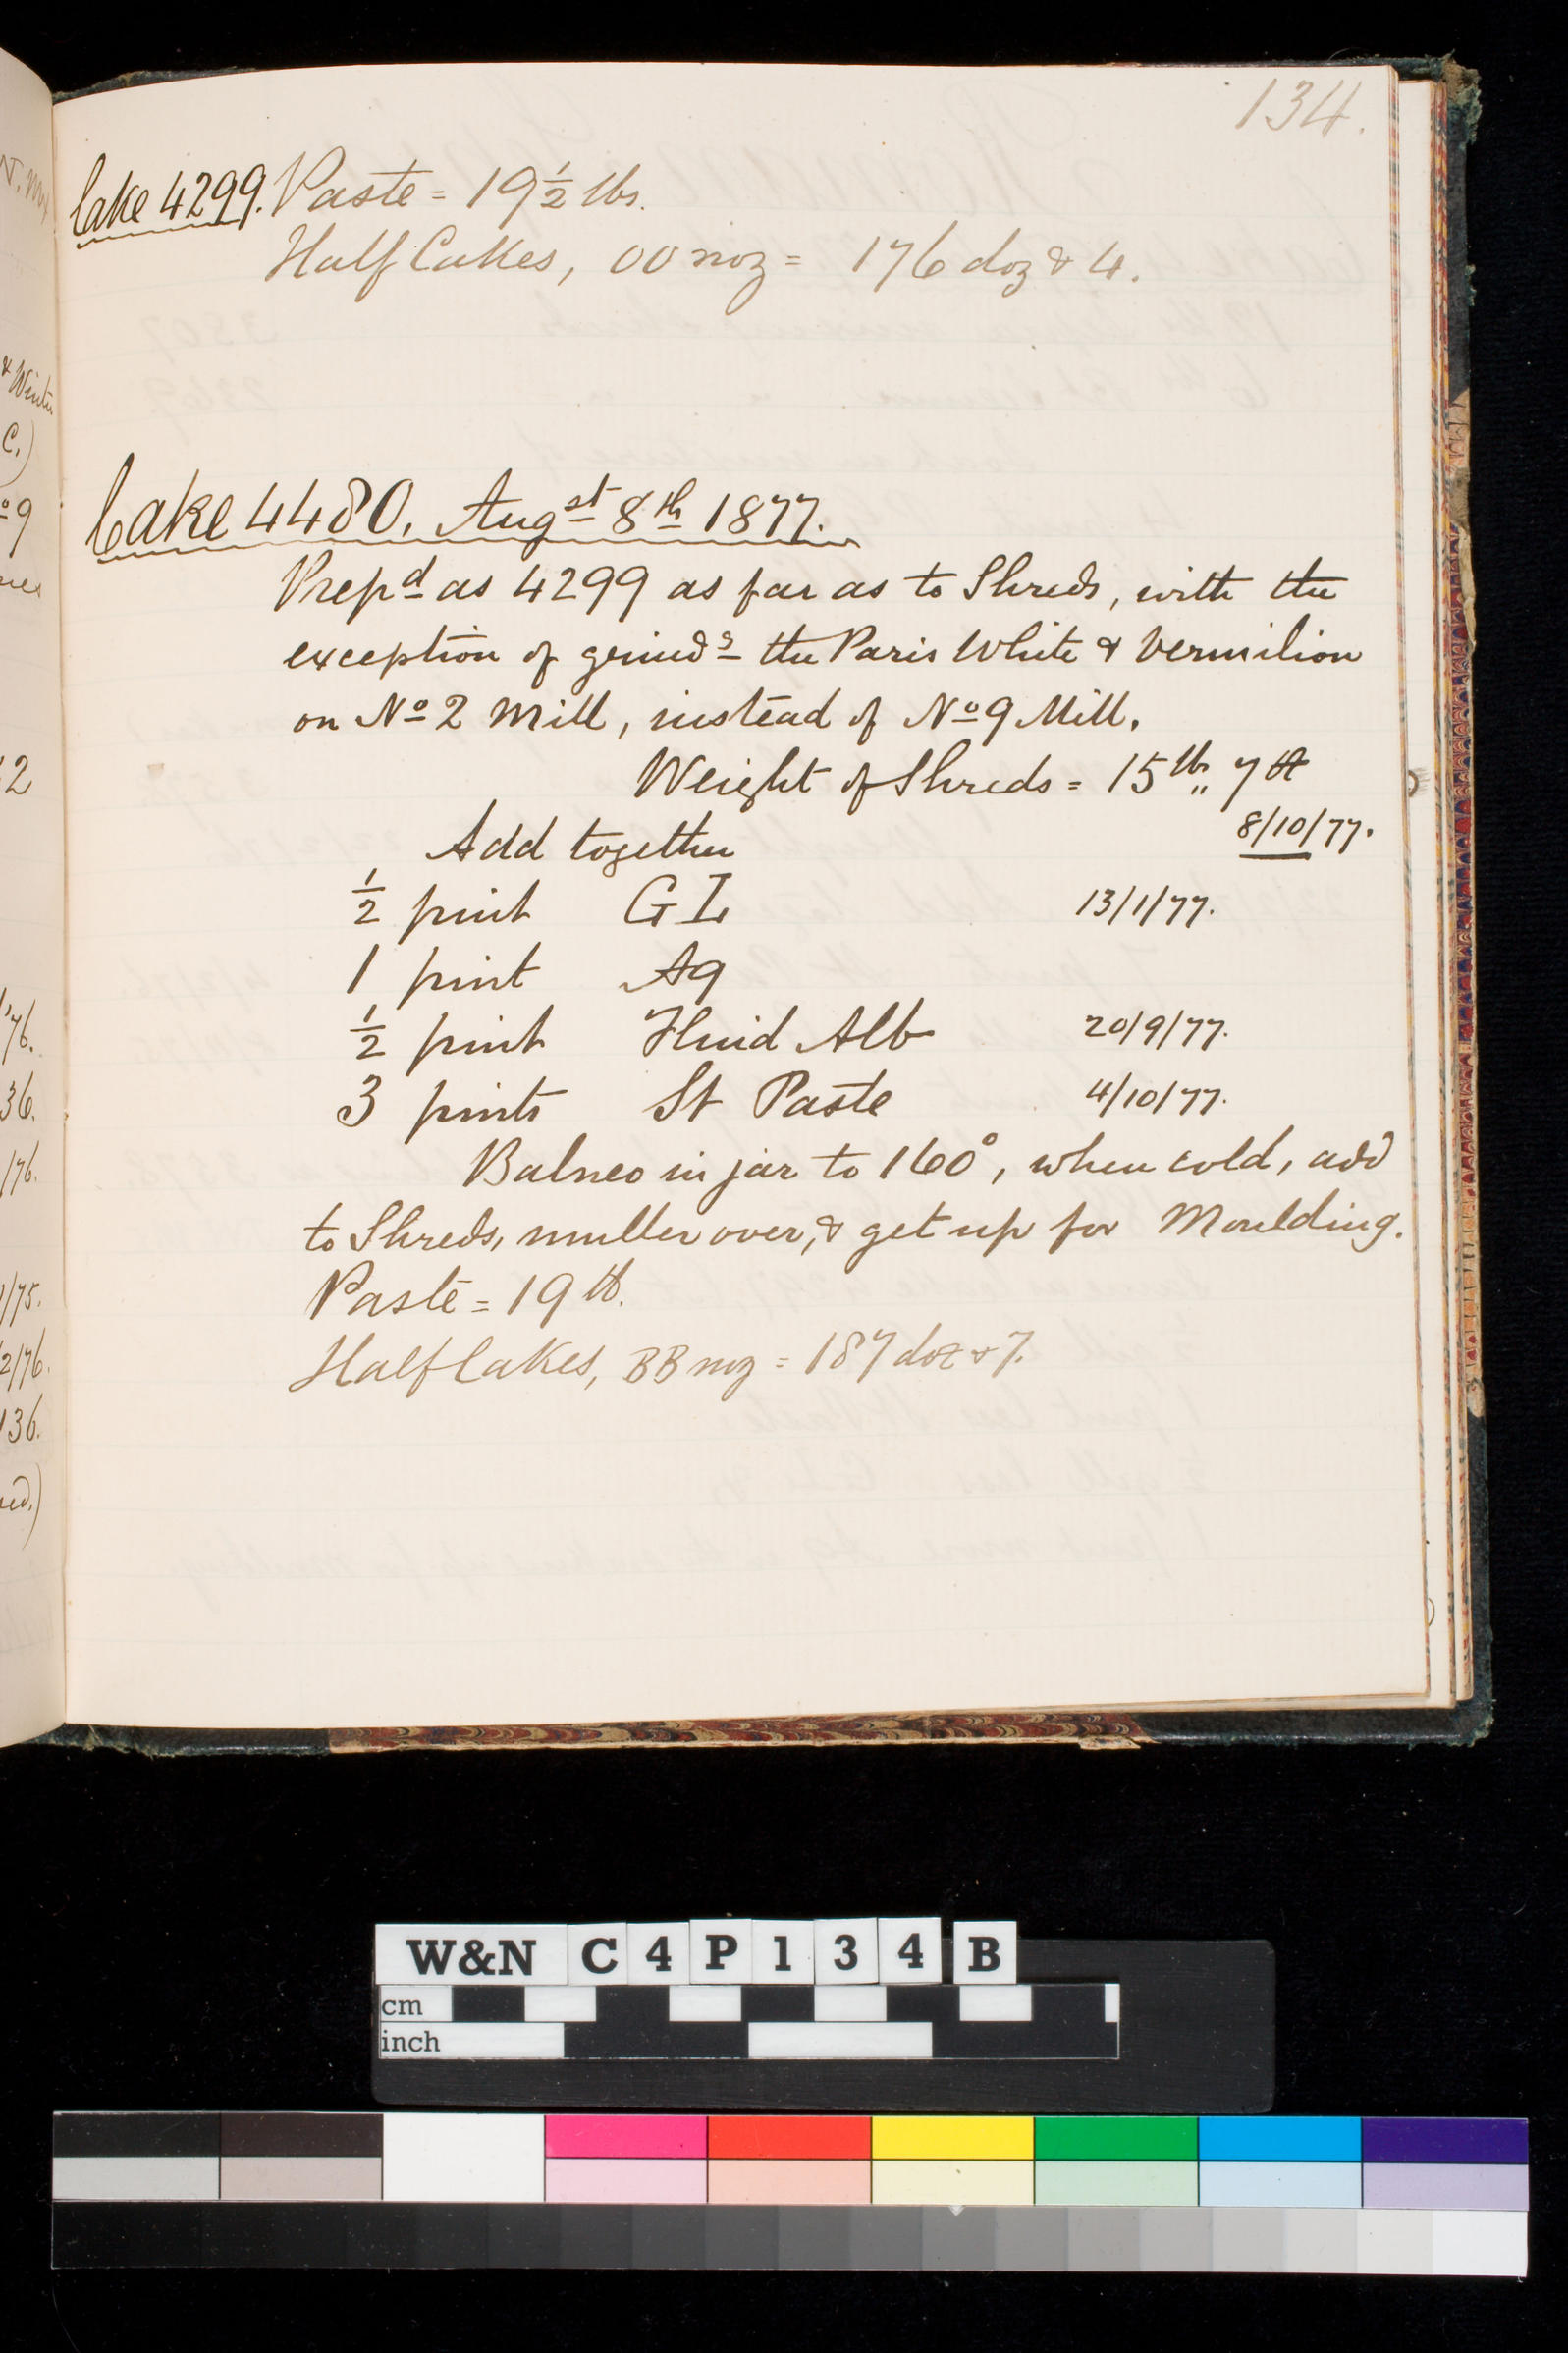 134.
Cake 4299. Paste = 19 1/2 lbs.
Half Cakes, 00 moz = 176 doz & 4.
Cake 4480. Augst 8th 1877.
Prepd as 4299 as far as to Shreds, with the
exception of grindg the Paris White & Vermilion
on No 2 Mill, instead of No 9 Mill.
Weight of Shreds = 15 lb ,, 7
8/10/77.
Add together
1/2 pint G L 13/1/77.
1 pint Aq
1/2 pint Fluid Alb 20/9/77.
3 pints St Paste 4/10/77.
Balneo in jar to 160°, when cold, add
to Shreds, muller over, & get up for Moulding.
Paste = 19 lb.
Half Cakes, BB moz = 187 doz & 7.
W&N C4P134B
cm
inch